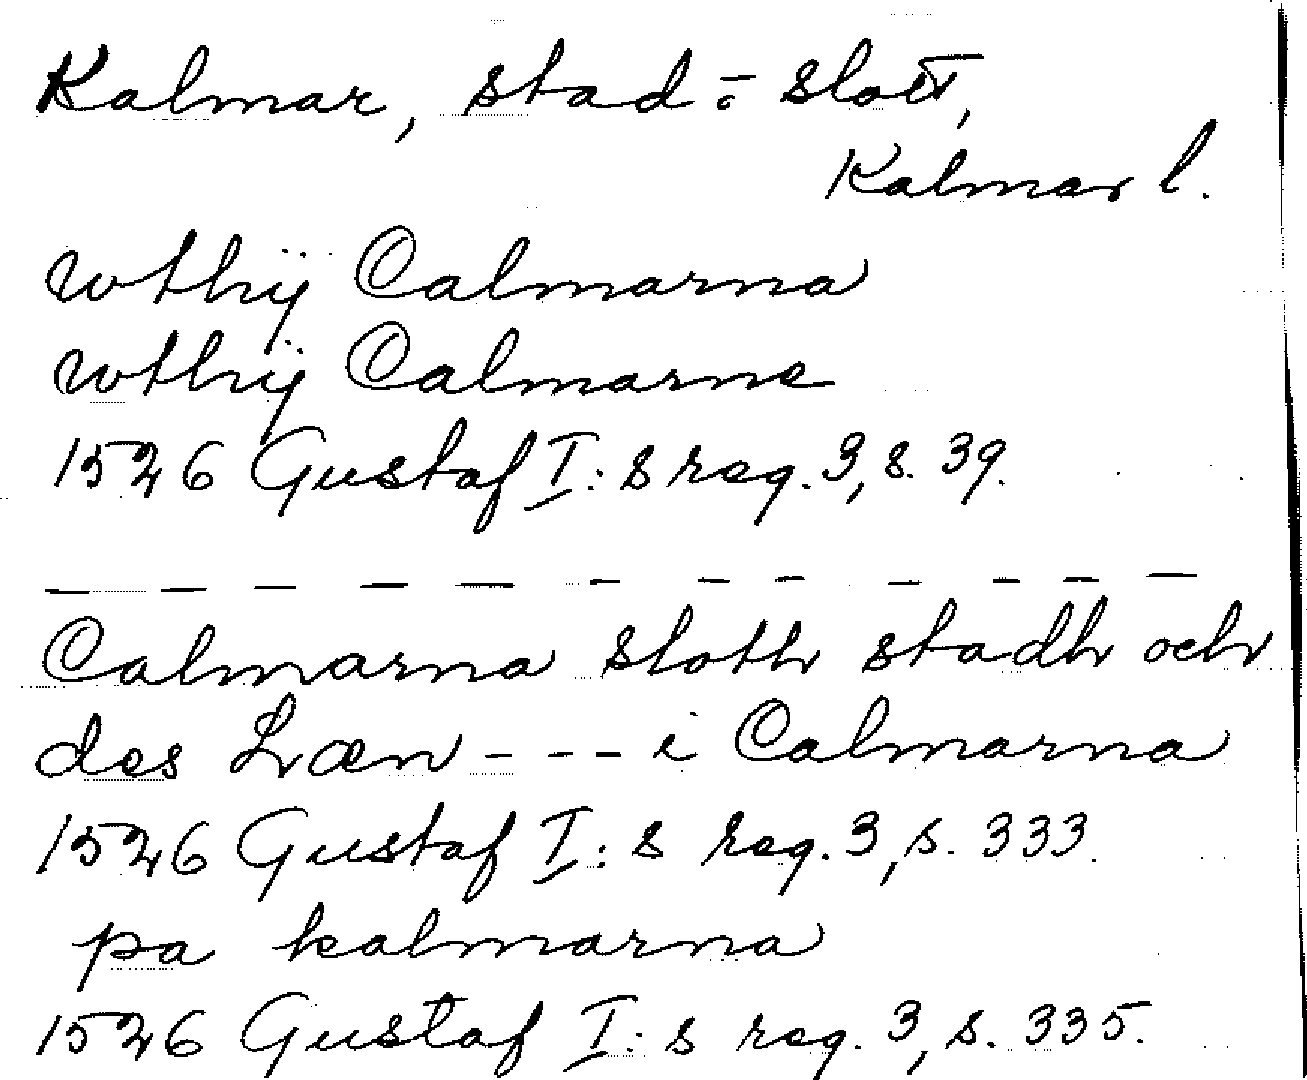 Kalmar, stad o slott,
Kalmar l.
wthij Calmarna
wthij Calmarne
1526 Gustaf I:s reg. 3, s. 39.
— — — — — — — — — — — —
Calmarna sloth stadh och
des Læn - - - i Calmarna
1526 Gustaf I:s reg. 3, s. 333.
pa kalmarna
1526 Gustaf I:s reg. 3, s. 335.